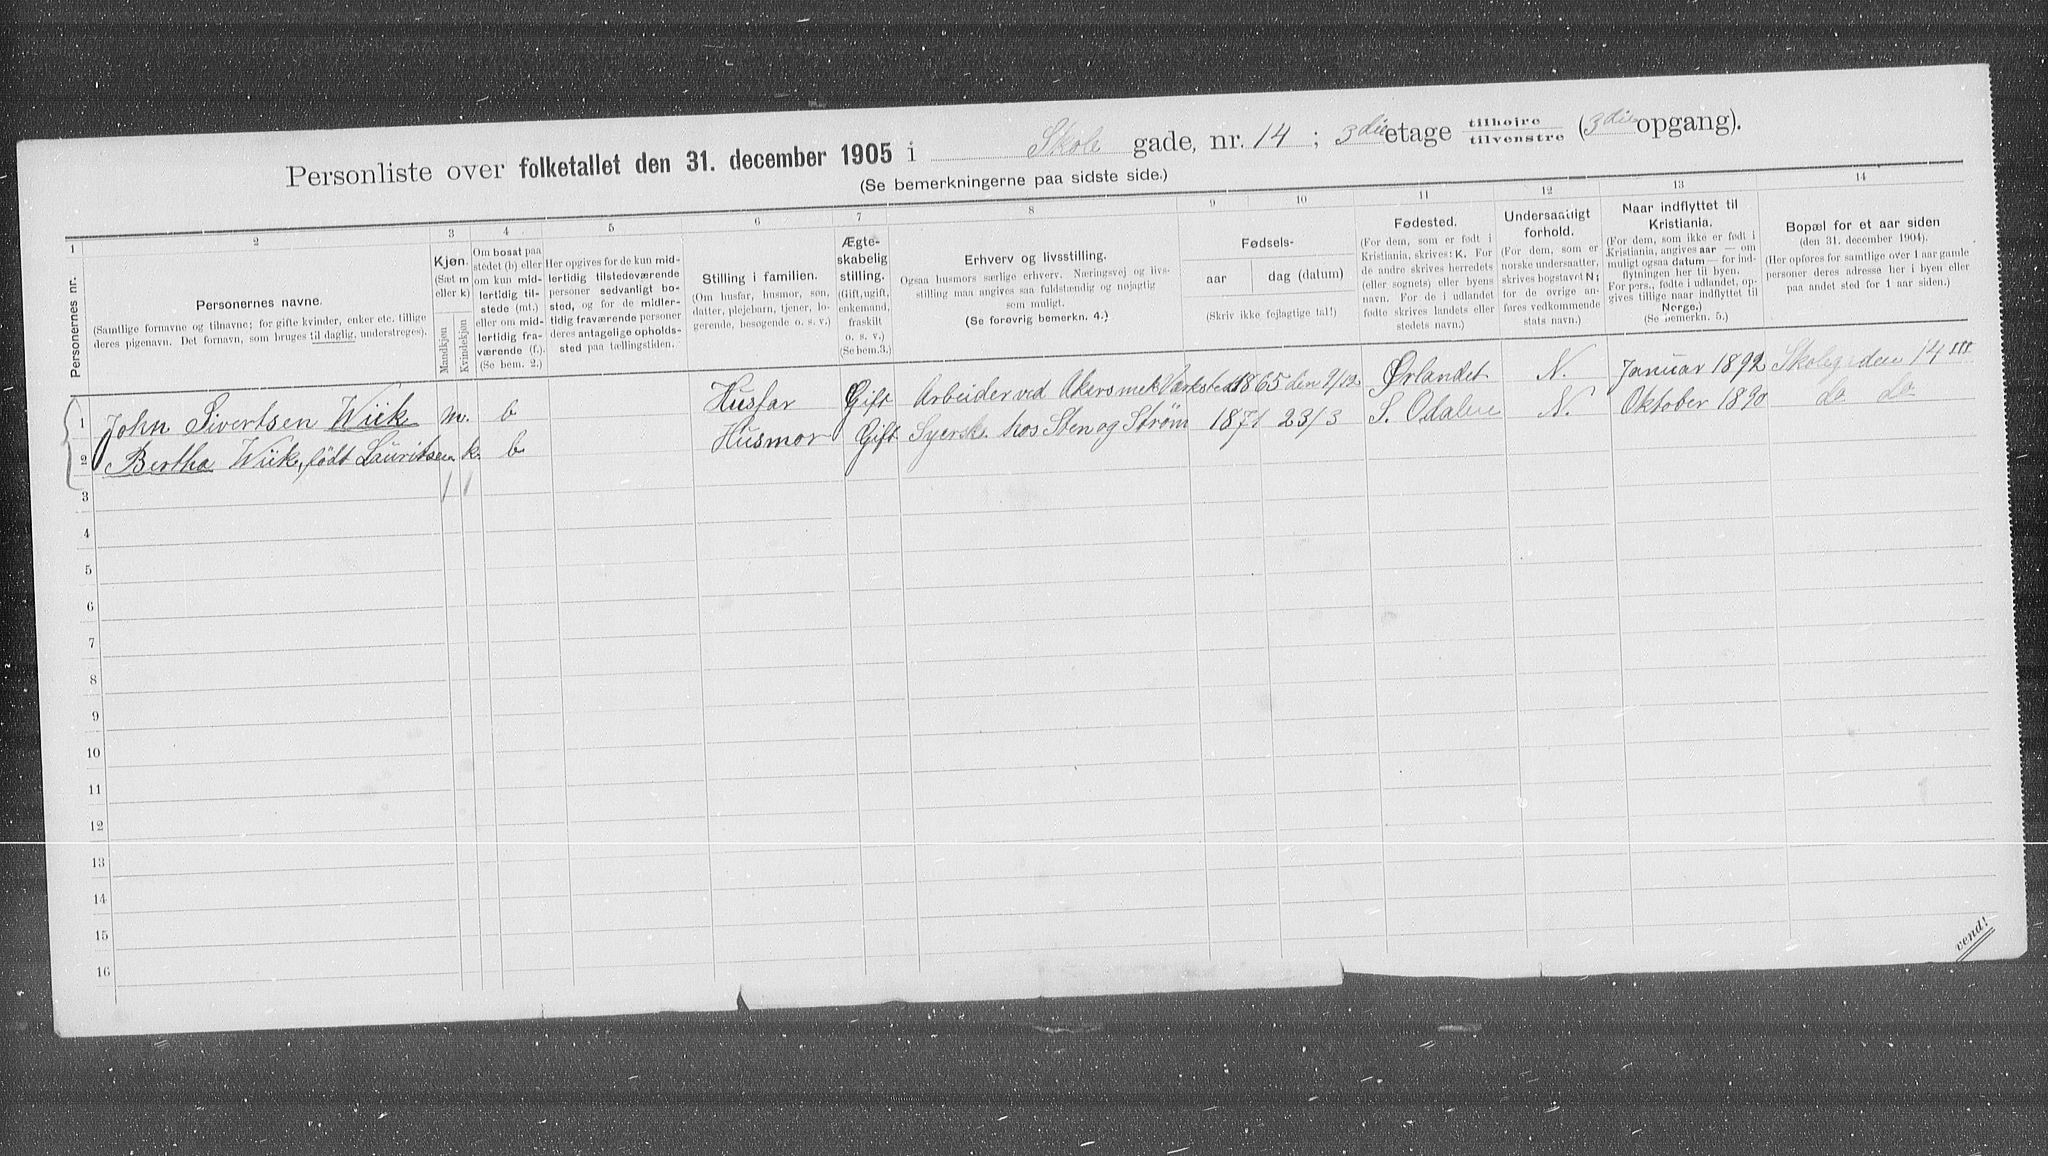 Personliste over folketallet den 31. december 1905 i Skole gade, nr. 14 ; 3die etage tilhøjre tilvenstre (3die opgang).
(Se bemerkningerne paa sidste side.)
1 2 3 4 5 6 7 8 9 10 11 12 13 14
Personernes nr.
Personernes navne.
(Samtlige fornavne og tilnavne; for gifte kvinder, enker etc. tillige
deres pigenavn. Det fornavn, som bruges til daglig, understreges).
Kjøn.
(Sæt m
eller k)
Mandkjøn
Kvindekjøn
Om bosat paa
stedet (b) eller
om kun mid-
lertidig til-
stede (mt.)
eller om mid-
lertidig fra-
værende (f.).
(Se bem. 2.)
Her opgives for de kun mid-
lertidig tilstedeværende
personer sedvanligt bo-
sted, og for de midler-
tidig fraværende personer
deres antagelige opholds-
sted paa tællingstiden.
Stilling i familien.
(Om husfar, husmor, søn,
datter, plejebarn, tjener, lo-
gerende, besøgende o. s. v.)
Ægte-
skabelig
stilling.
(Gift, ugift,
enkemand,
fraskilt
o. s. v.)
(Se bem. 3.)
Erhverv og livsstilling.
Ogsaa husmors særlige erhverv. Næringsvej og livs-
stilling maa angives saa fuldstændig og nøjagtig
som muligt.
(Se forøvrig bemerkn. 4.)
Fødsels-
aar dag (datum)
(Skriv ikke fejlagtige tal!)
Fødested.
(For dem, som er født i
Kristiania, skrives: K. For
de andre skrives herredets
(eller sognets) eller byens
navn. For de i udlandet
fødte skrives landets eller
stedets navn.)
Undersaatligt
forhold.
(For dem, som er
norske undersaatter,
skrives bogstavet N;
for de øvrige an-
føres vedkommende
stats navn.)
Naar indflyttet til
Kristiania.
(For dem, som ikke er født i
Kristiania, angives aar — om
muligt ogsaa datum — for ind-
flytningen her til byen.
For pers., fødte i udlandet, op-
gives tillige naar indflyttet til
Norge.)
(Se bemerkn. 5.)
Bopæl for et aar siden
(den 31. december 1904).
(Her opføres for samtlige over 1 aar gamle
personer deres adresse her i byen eller
paa andet sted for 1 aar siden.)
1 John Sivertsen Wiik m. b Husfar Gift Arbeider ved Akers mek Værksted 1865 den 9/12 Ørlandet N. Januar 1892 14 III
2 Bertha Wiik, født Lauritsen k. b Husmor Gift Syerske hos Sten og Strøm 1871 23/3 S. Odalen N. Oktober 1890 do do
3
4
5
6
7
8
9
10
11
12
13
14
15
16
vend!